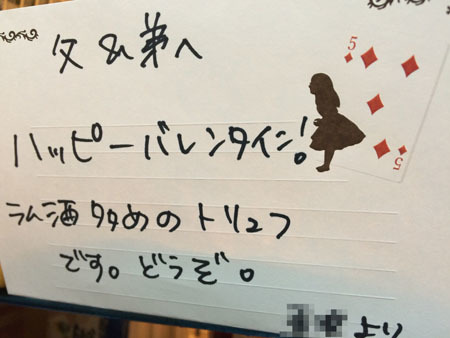 父&弟へ
ハッピーバレンタイン!
ラム酒多めのトリュフ
です。どうぞ。
より
5
5